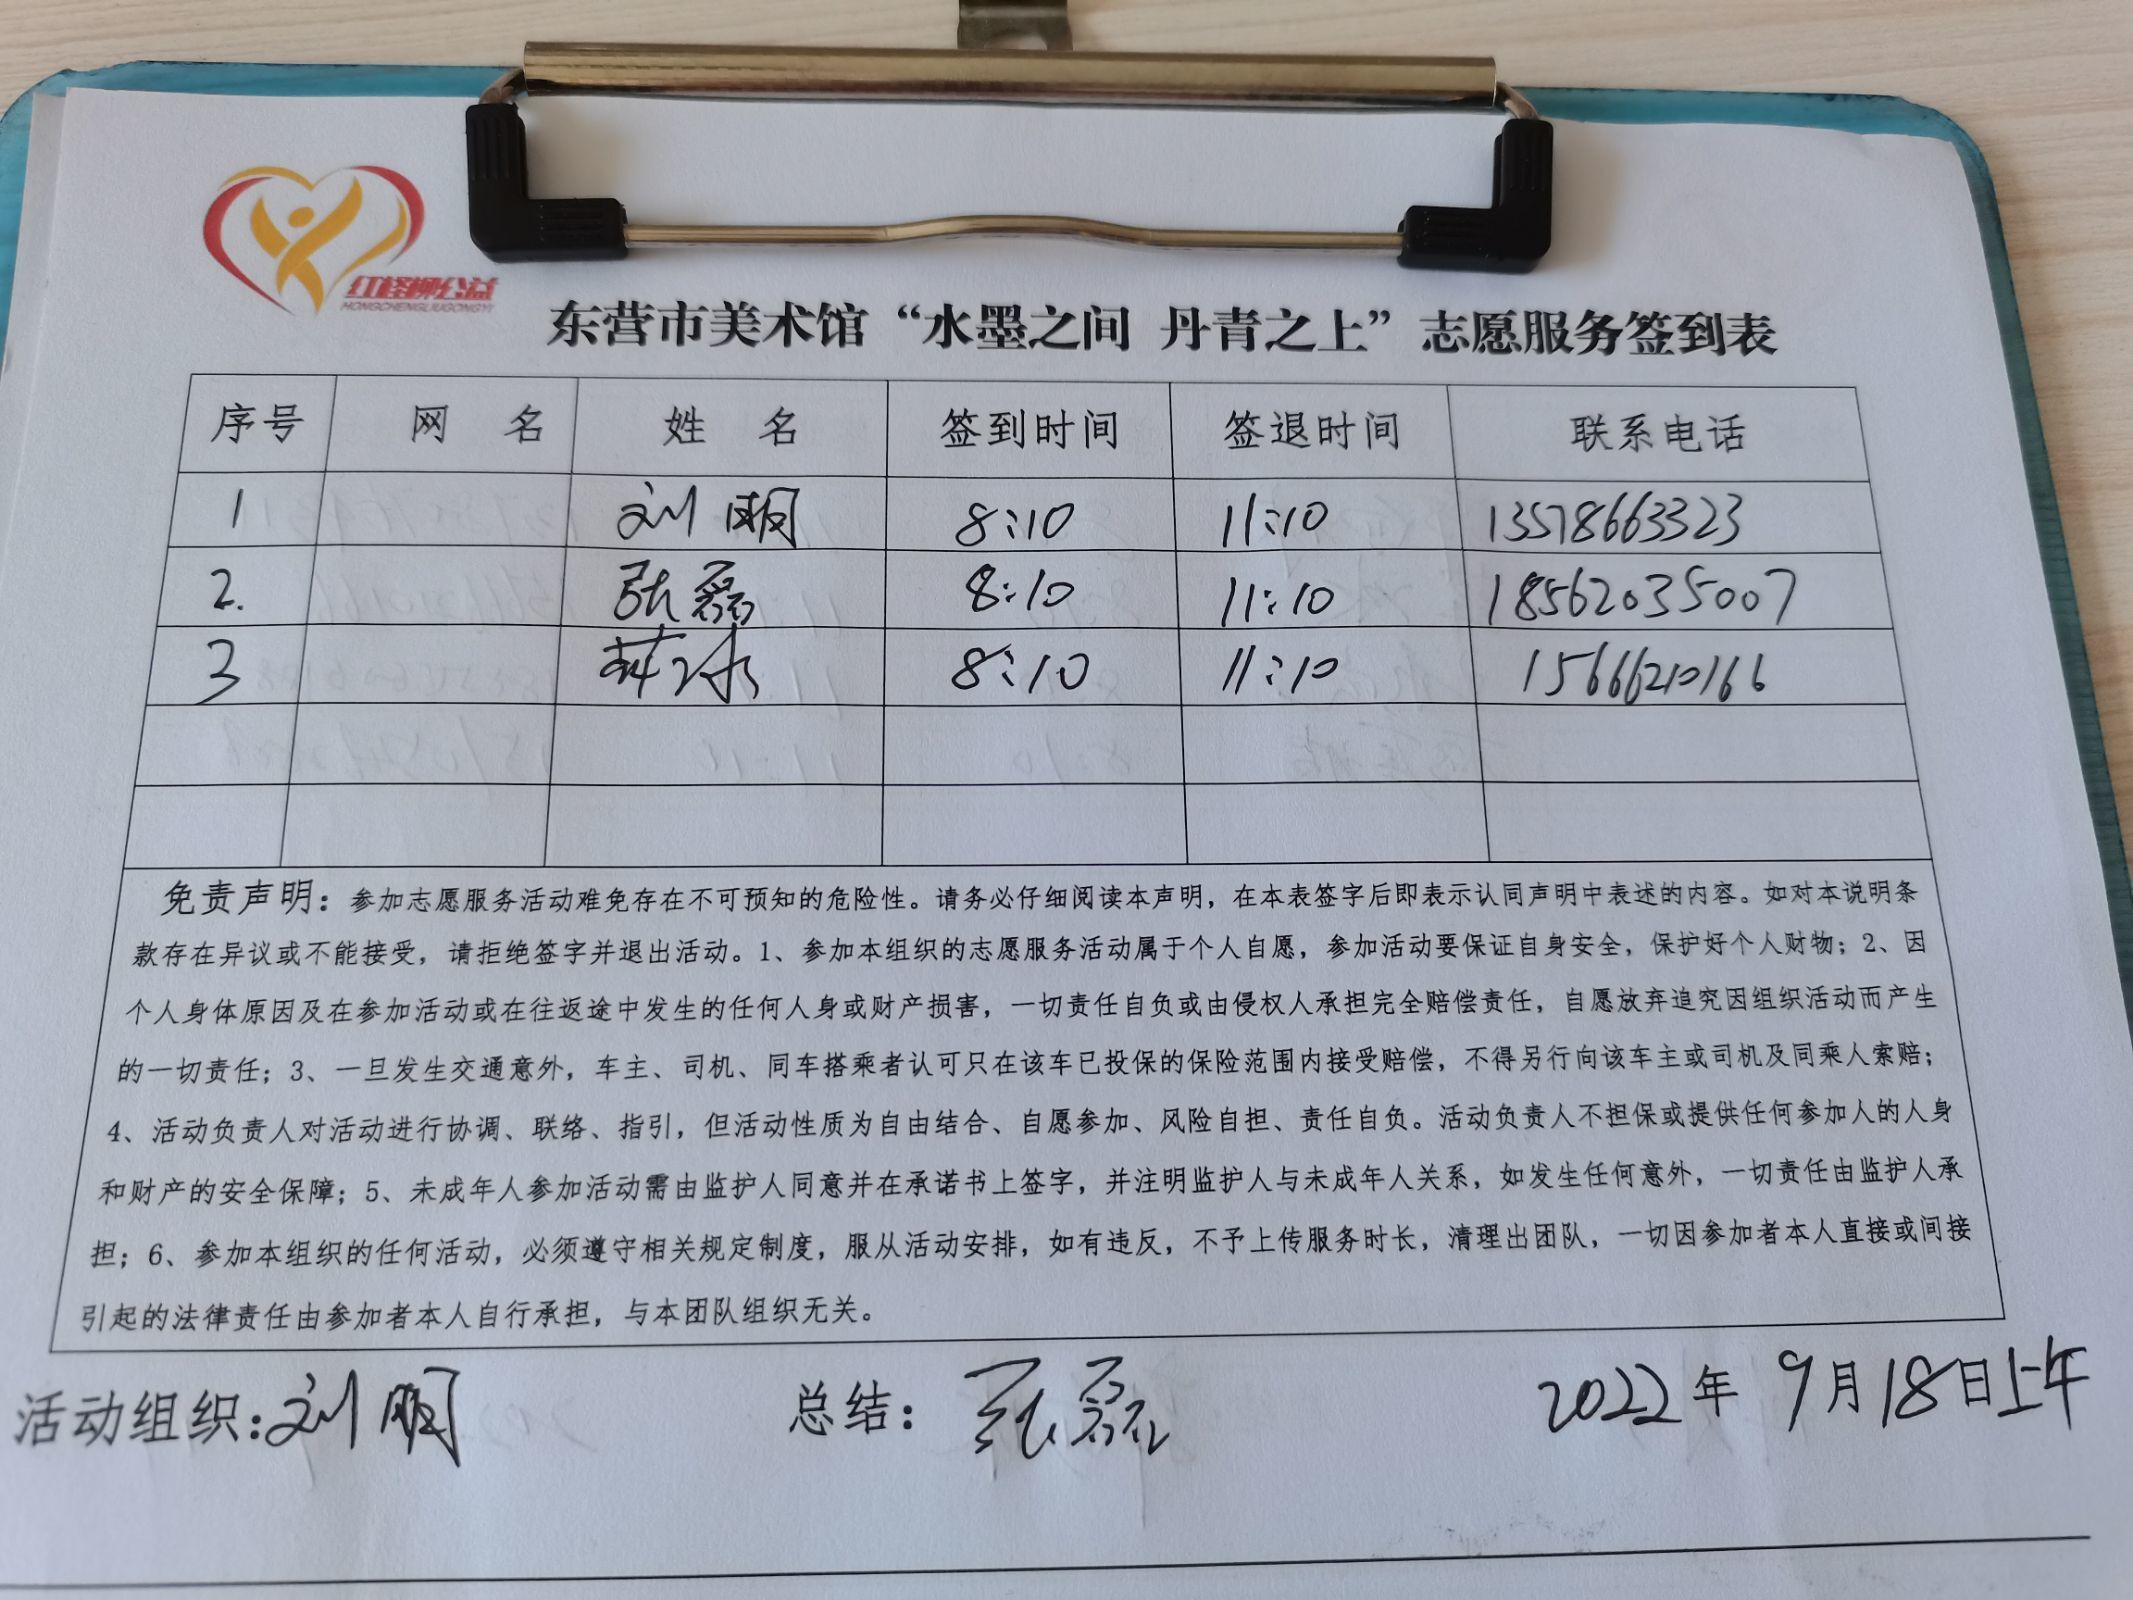 红柽柳公益
HONGCHENGLIUGONGYI
东营市美术馆“水墨之间 丹青之上”志愿服务签到表
序号 网 名 姓 名 签到时间 签退时间 联系电话
1 刘 8:10 11:10 13578663323
2. 张磊 8:10 11:10 18562035007
3 8:10 11:10 15666210166
免责声明：参加志愿服务活动难免存在不可预知的危险性。请务必仔细阅读本声明，在本表签字后即表示认同声明中表述的内容。如对本说明条
款存在异议或不能接受，请拒绝签字并退出活动。1、参加本组织的志愿服务活动属于个人自愿，参加活动要保证自身安全，保护好个人财物；2、因
个人身体原因及在参加活动或在往返途中发生的任何人身或财产损害，一切责任自负或由侵权人承担完全赔偿责任，自愿放弃追究因组织活动而产生
的一切责任；3、一旦发生交通意外，车主、司机、同车搭乘者认可只在该车已投保的保险范围内接受赔偿，不得另行向该车主或司机及同乘人索赔；
4、活动负责人对活动进行协调、联络、指引，但活动性质为自由结合、自愿参加、风险自担、责任自负。活动负责人不担保或提供任何参加人的人身
和财产的安全保障；5、未成年人参加活动需由监护人同意并在承诺书上签字，并注明监护人与未成年人关系，如发生任何意外，一切责任由监护人承
担；6、参加本组织的任何活动，必须遵守相关规定制度，服从活动安排，如有违反，不予上传服务时长，清理出团队，一切因参加者本人直接或间接
引起的法律责任由参加者本人自行承担，与本团队组织无关。
活动组织：刘 总结：张磊 2022年 9月18日上午